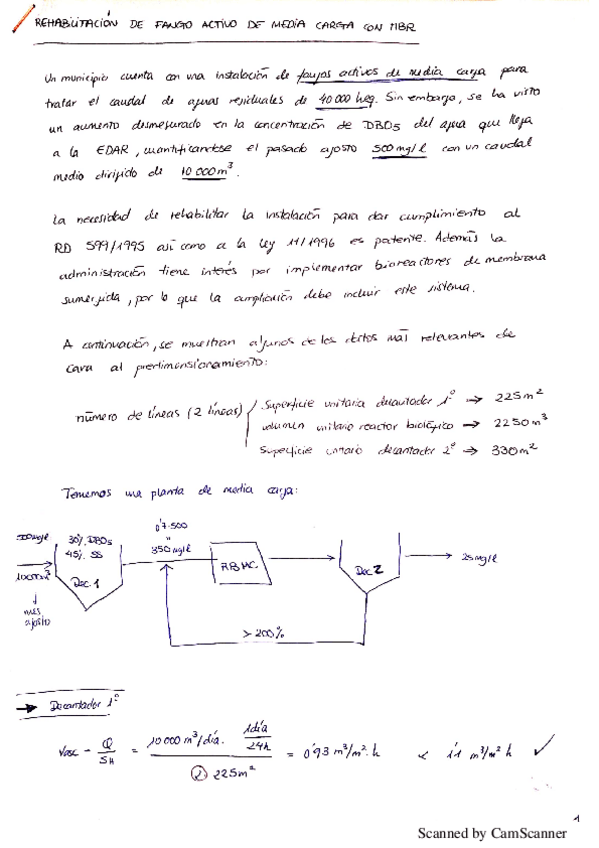 REHABILITACIÓN DE FANGO ACTIVO DE MEDIA CARGA CON MBR
Un municipio cuenta con una instalación de fangos activos de media carga para
tratar el caudal de aguas residuales de 40 000 heq. Sin embargo, se ha visto
un aumento desmesurado en la concentración de DBO5 del agua que llega
a la EDAR, cuantificandose el pasado agosto 500 mg/l con un caudal
medio dirigido de 10 000 m³.
La necesidad de rehabilitar la instalación para dar cumplimiento al
RD 599/1995 así como a la ley 11/1996 es patente. Además la
administración tiene interés por implementar bioreactores de membrana
sumergida, por lo que la ampliación debe incluir este sistema.
A continuación, se muestran algunos de los datos más relevantes de
cara al predimensionamiento:
número de líneas (2 líneas)
Superficie unitaria decantador 1º → 225 m²
volumen unitario reactor biológico → 2250 m³
Superficie unitario decantador 2º → 330 m²
Tenemos una planta de media carga:
500 mg/l
10000 m³
mes
agosto
30% DBO5
45% SS
Dec. 1
0'7·500
"
350 mg/l
RBMC
Dec 2
25 mg/l
> 200%
→ Decantador 1º
Vasc - Q/SH = 10 000 m³/día · 1día/24h / ② 225 m² = 0'93 m³/m²·h < 1'1 m³/m² h ✓
1
Scanned by CamScanner